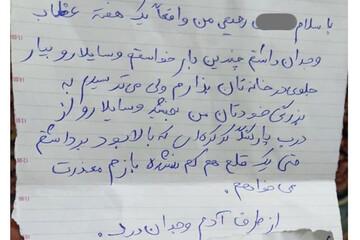 با سلام رحیمی من واقعاً یک هفته عذاب
وجدان داشتم چندین بار خواستم وسایلارو بیار
جلوی در خانه‌تان بذارم ولی می‌ترسیدم به
بزرگی خودتان من ببخشید وسایلارو از
درب پارکینگ کرکره‌ای که بالا بود برداشتم
حتی یک قلم هم کم نشده بازم معذرت
می‌خواهم.
از طرف آدم وجدان درد.